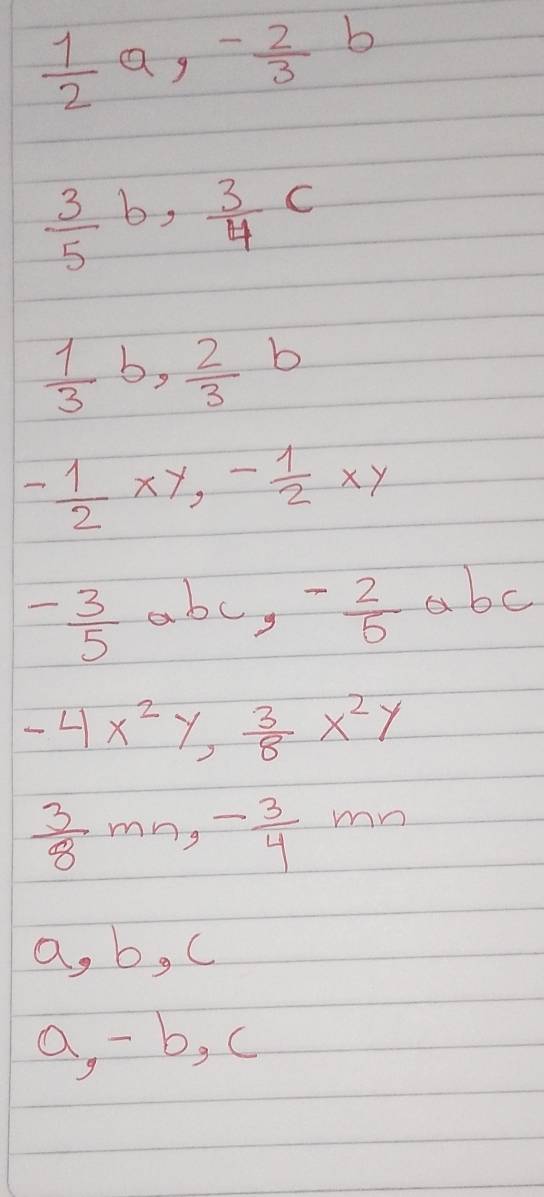 1/2 a, -2/3 b
3/5 b, 3/4 c
1/3 b, 2/3 b
-1/2 xy, -1/2 xy
-3/5 abc, -2/5 abc
-4x²y, 3/8 x²y
3/8 mn, -3/4 mn
a, b, c
a, -b, c